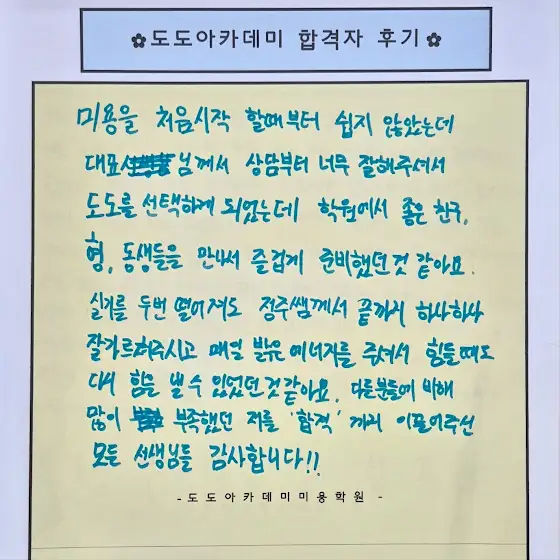 ✿도도아카데미 합격자 후기✿
미용을 처음시작 할때부터 쉽지 않았는데
대표 님께서 상담부터 너무 잘해주셔서
도도를 선택하게 되었는데 학원에서 좋은 친구,
형, 동생들을 만나서 즐겁게 준비했던것 같아요.
실기를 두번 떨어져도 정주쌤께서 끝까지 하나하나
잘가르쳐주시고 매일 밝은 에너지를 주셔서 힘들때도
다시 힘을 낼 수 있었던것같아요. 다른분들에 비해
많이 부족했던 저를 '합격' 까지 이끌어주신
모든 선생님들 감사합니다!!
-도도아카데미미용학원 -